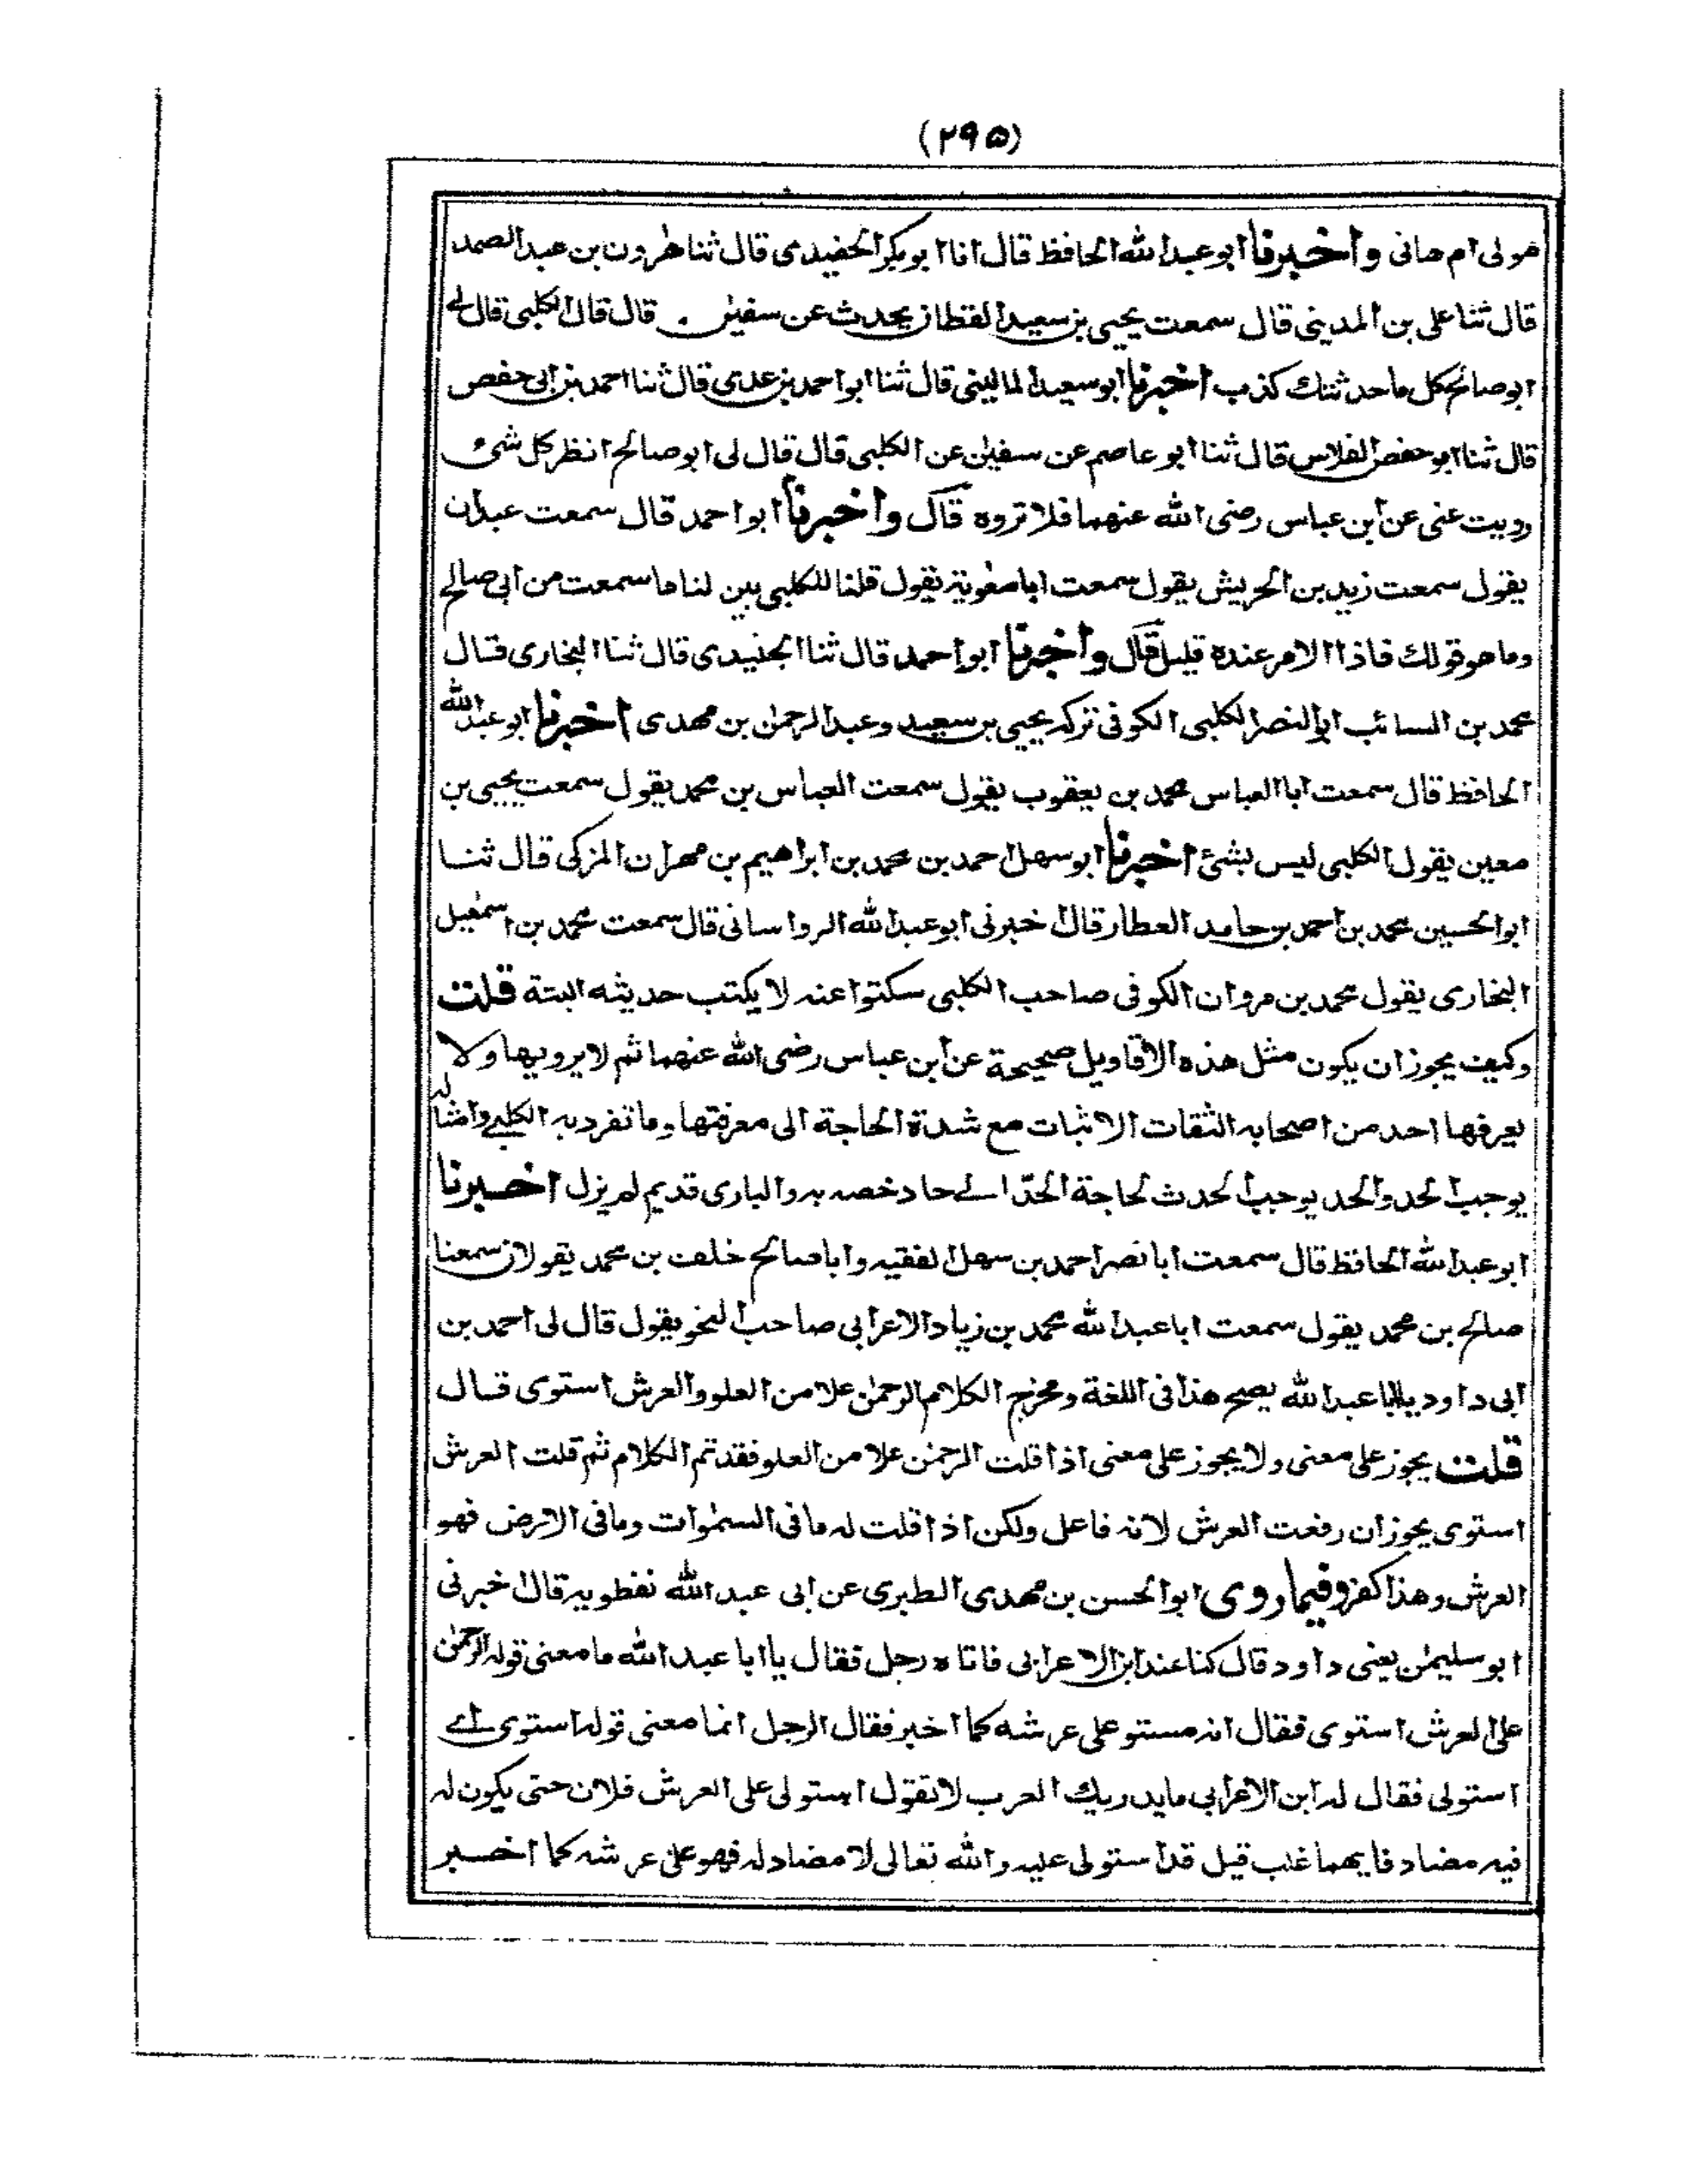 (۲۹۵)
مولى ام هانى واخبرنا ابو عبد الله الحافظ قال انا ابو بكر الحفيدى قال ثنا هٰرون بن عبد الصمد
قال ثنا على بن المدينى قال سمعت يحيى بن سعيد القطان يحدث عن سفيٰن . قال قال الكلبى قال لى
ابو صالح كل ما حدثتك كذب اخبرنا ابو سعيد المالينى قال ثنا ابو احمد بن عدى قال ثنا احمد بن ابى حفص
قال ثنا ابو حفص الفلاس قال ثنا ابو عاصم عن سفيٰن عن الكلبى قال قال لى ابو صالح انظر كل شئ
رويت عنى عن ابن عباس رضى الله عنهما فلا تروه قال واخبرنا ابو احمد قال سمعت عبدان
يقول سمعت زيد بن الحريش يقول سمعت ابا معٰوية يقول قلنا للكلبى بين لنا ما سمعت من ابى صالح
وما هو قولك فاذا الامر عنده قليل قال واخبرنا ابو احمد قال ثنا الجنيدى قال ثنا البخارى قال
محمد بن السائب ابو النضر الكلبى الكوفى تركه يحيى بن سعيد وعبد الرحمٰن بن مهدى اخبرنا ابو عبد الله
الحافظ قال سمعت ابا العباس محمد بن يعقوب يقول سمعت العباس بن محمد يقول سمعت يحيى بن
معين يقول الكلبى ليس بشئ اخبرنا ابو سهل احمد بن محمد بن ابراهيم بن مهران المزكى قال ثنا
ابو الحسين محمد بن احمد بن حامد العطار قال اخبرنى ابو عبد الله الرواسانى قال سمعت محمد بن اسمٰعيل
البخارى يقول محمد بن مروان الكوفى صاحب الكلبى سكتوا عنه لا يكتب حديثه البتة قلت
وكيف يجوز ان يكون مثل هذه الاقاويل صحيحة عن ابن عباس رضى الله عنهما ثم لا يرويها ولا
يعرفها احد من اصحابه الثقات الاثبات مع شدة الحاجة الى معرفتها وما تفرد به الكلبى وامثاله
يوجب الحد والحد يوجب الحدث لحاجة الحدّ الى حاد خصه به والبارى قديم لم يزل اخبرنا
ابو عبد الله الحافظ قال سمعت ابا نصر احمد بن سهل الفقيه وابا صالح خلف بن محمد يقولان سمعنا
صالح بن محمد يقول سمعت ابا عبد الله محمد بن زياد الاعرابى صاحب النحو يقول قال لى احمد بن
ابى داود يا ابا عبد الله يصح هذا فى اللغة ومخرج الكلام الرحمٰن علا من العلو والعرش استوى قال
قلت يجوز على معنى ولا يجوز على معنى اذا قلت الرحمٰن علا من العلو فقد تم الكلام ثم قلت العرش
استوى يجوز ان رفعت العرش لانه فاعل ولكن اذا قلت له ما فى السمٰوات وما فى الارض فهو
العرش وهذا كفر وفيما روى ابو الحسن بن مهدى الطبرى عن ابى عبد الله نفطويه قال اخبرنى
ابو سليمٰن يعنى داود قال كنا عند ابن الاعرابى فاتاه رجل فقال يا ابا عبد الله ما معنى قوله الرحمٰن
على العرش استوى فقال انه مستو على عرشه كما اخبر فقال الرجل انما معنى قوله استوى اى
استولى فقال له ابن الاعرابى ما يدريك العرب لا تقول استولى على العرش فلان حتى يكون له
فيه مضاد فايهما غلب قيل قد استولى عليه والله تعالى لا مضاد له فهو على عرشه كما اخبر